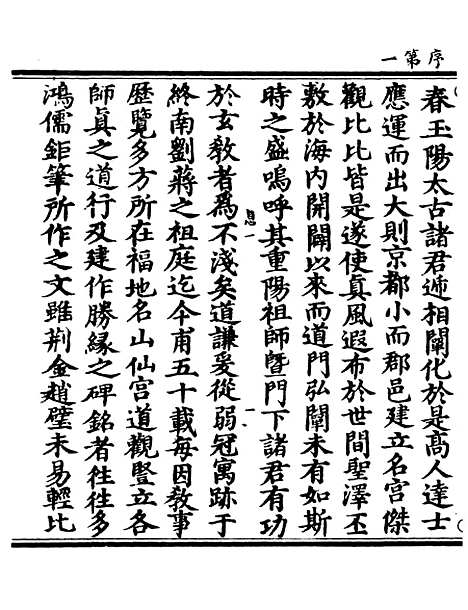 序第一
春玉陽太古諸君遞相闡化於是高人達士
應運而出大則京都小而郡邑建立名宮傑
觀比比皆是遂使真風遐布於世間聖澤丕
敷於海内開闢以來而道門弘闡未有如斯
時之盛嗚呼其重陽祖師暨一門下諸君有功
於玄教者爲不淺矣道謙爰從弱冠寓跡于
終南劉蔣之祖庭迄今甫五十載每因教事
歷覽多方所在福地名山仙宮道觀豎立各
師真之道行及建作勝緣之碑銘者往往多
鴻儒鉅筆所作之文雖荆金趙璧未易輕比